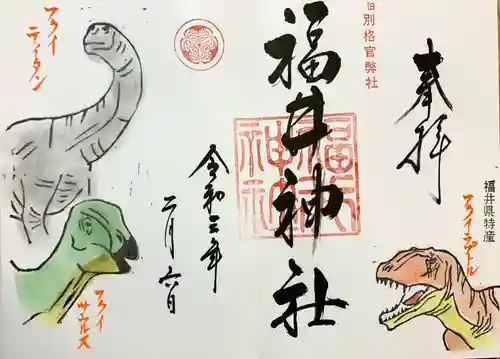 奉拝
福井県特産
フクイラプトル
旧別格官幣社
福井神社
令和三年
二月六日
フクイ
ティタン
フクイ
サウルス